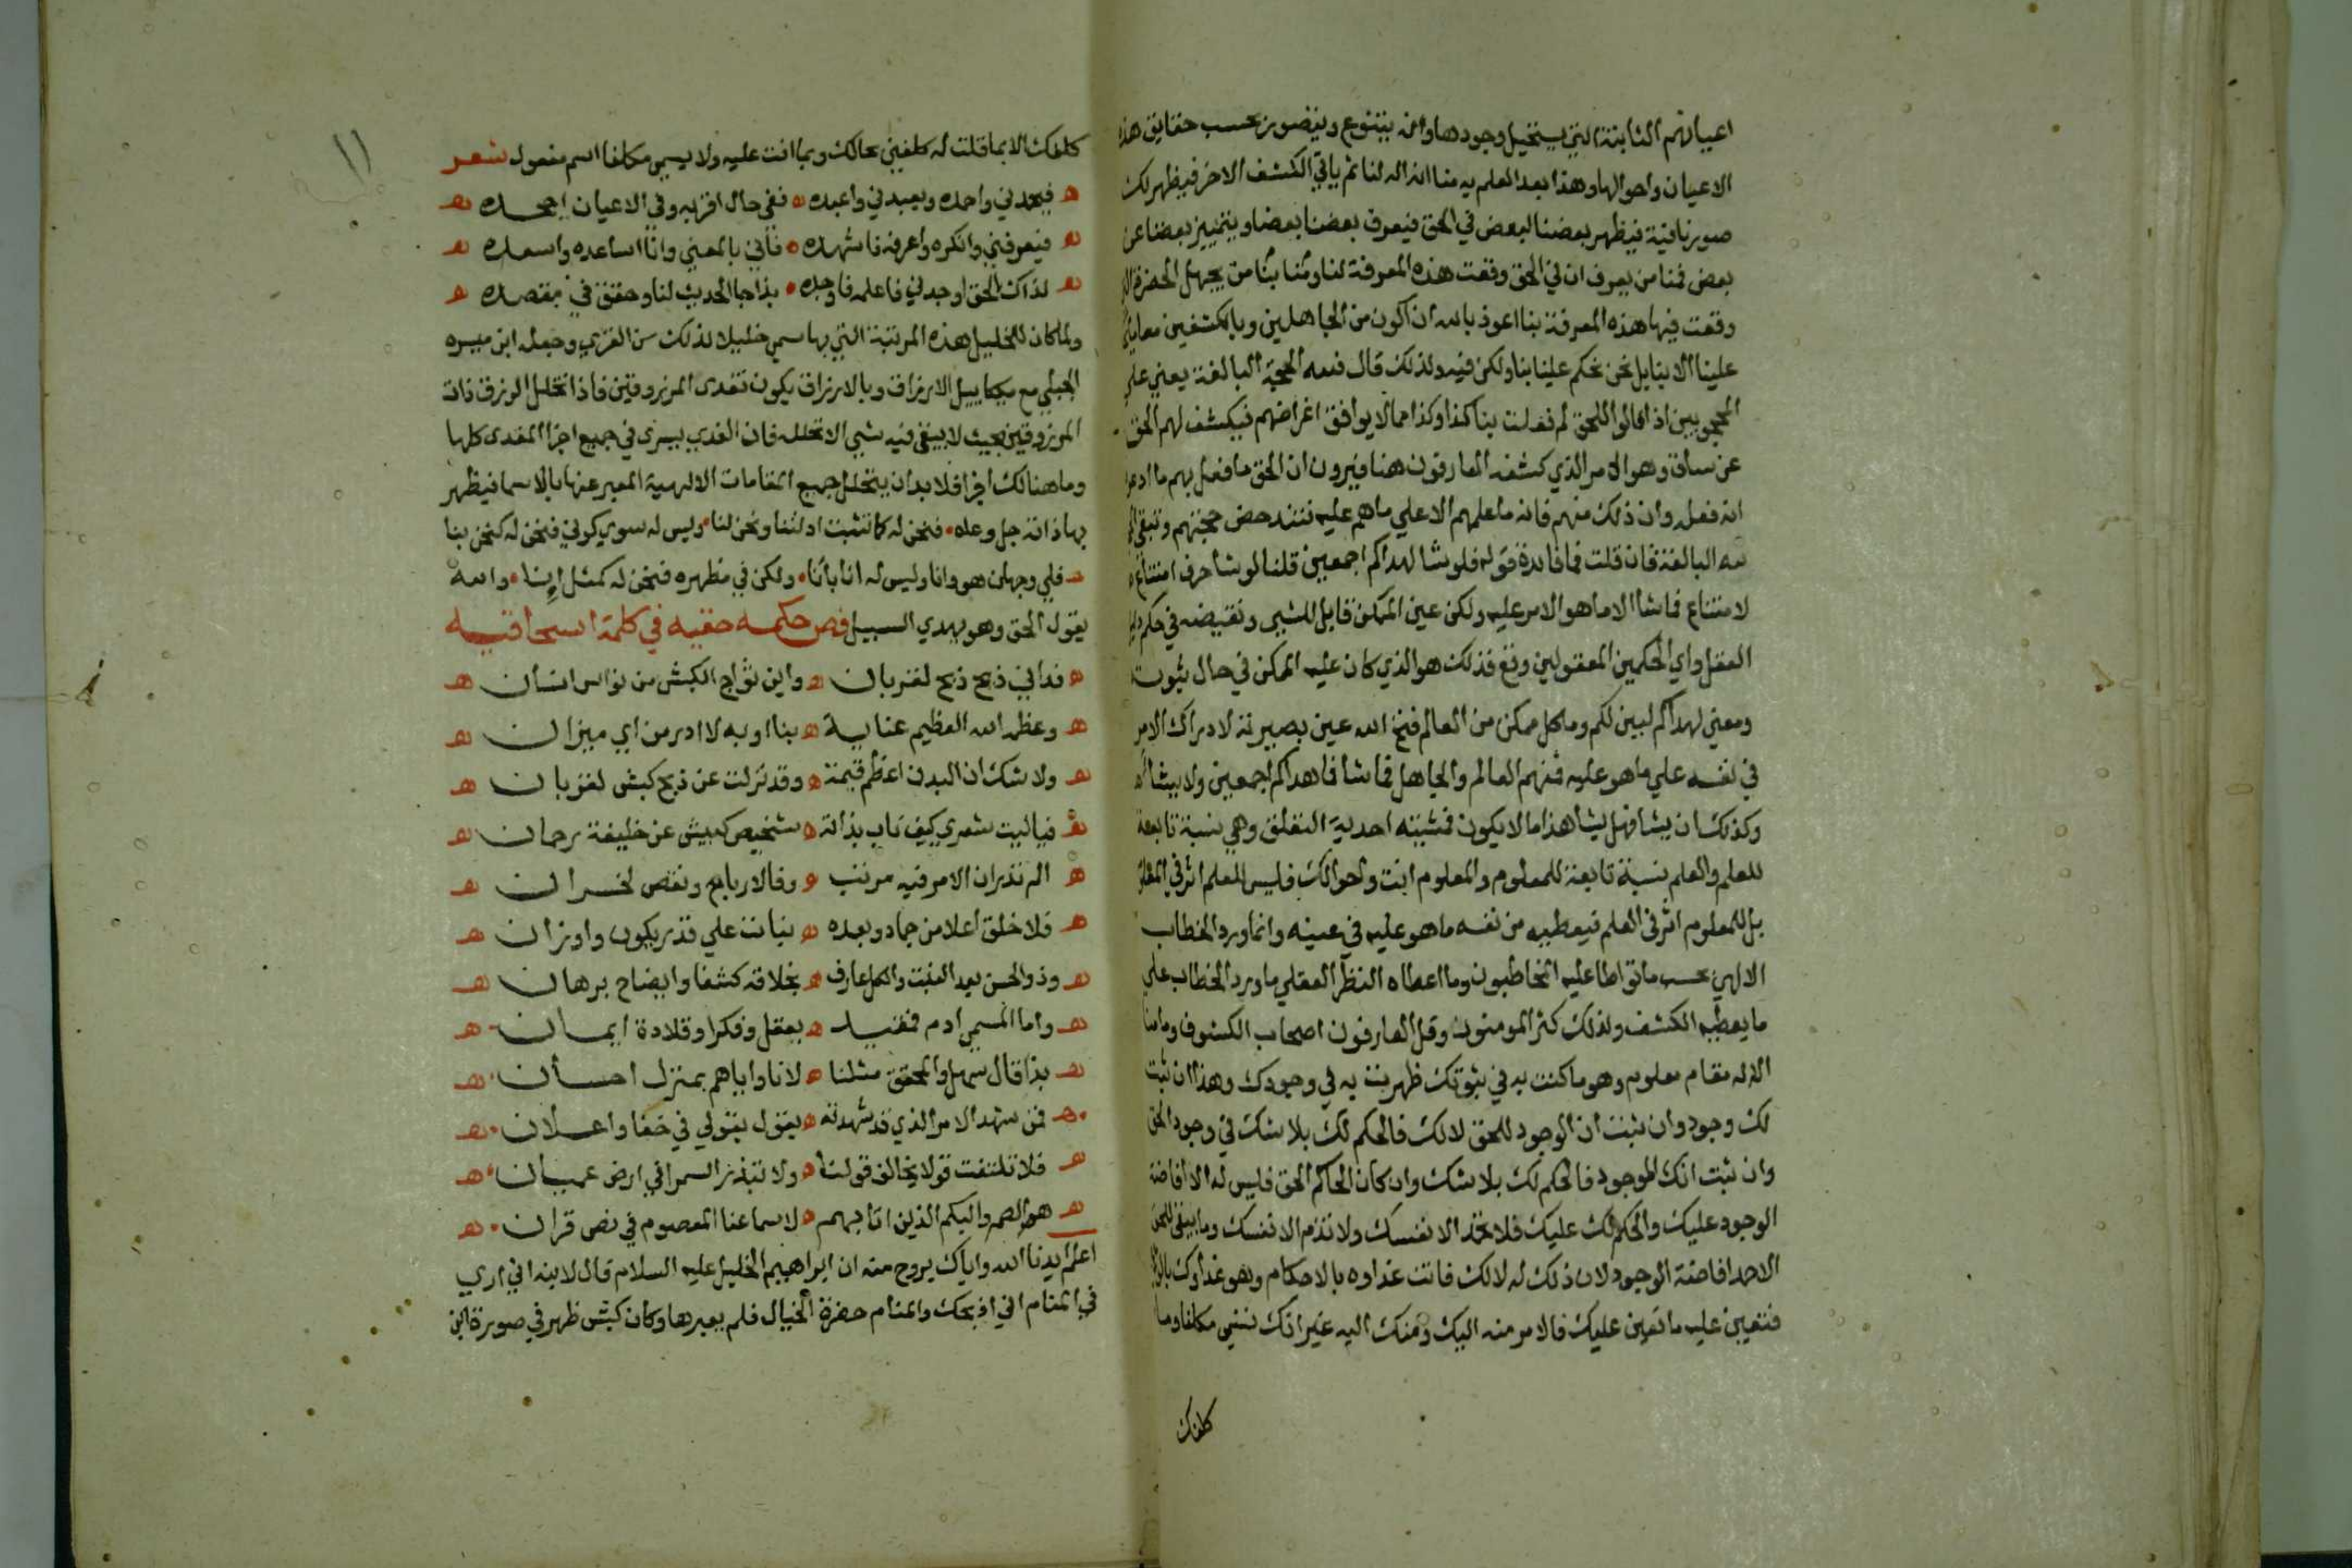 اعيانهم الثابتة التي يستحيل وجودها وانه يتنوع ويتصور بحسب حقايق هذه
الاعيان واحوالها وهذا بعد العلم به منا انه اله لنا ثم ياتي الكشف الاخر فيظهر لك
صورنا فيه فيظهر بعضنا لبعض في الحق فيعرف بعضنا بعضا ويتميز بعضنا عن
بعض فمنا من يعرف ان في الحق وقعت هذه المعرفة لنا بنا ومنا من يجهل الحضرة التي
وقعت فيها هذه المعرفة بنا اعوذ بالله ان اكون من الجاهلين وبالكشفين معا
علينا الا بنا بل نحن نحكم علينا بنا ولكن فيه ولذلك قال فلله الحجة البالغة يعني على
المحجوبين اذ قالوا للحق لم فعلت بنا كذا وكذا مما لا يوافق اغراضهم فيكشف لهم الحق
عن ساق وهو الامر الذي كشفه العارفون هنا فيرون ان الحق ما فعل بهم ما ادعوا
انه فعله وان ذلك منهم فانه ما علمهم الا علي ما هم عليه فتندحض حجتهم وتبقى
لله البالغة فان قلت فما فايدة قوله فلو شا لهداكم اجمعين قلنا لو شا حرف امتناع
لامتناع فما شا الا ما هو الامر عليه ولكن عين الممكن قابل للشي ونقيضه في حكم دليل
العقل واي الحكمين المعقولين وقع فذلك هو الذي كان عليه الممكن في حال ثبوته
ومعني لهداكم لبين لكم وما كل ممكن من العالم فتح الله عين بصيرته لادراك الامر
في نفسه علي ما هو عليه فمنهم العالم والجاهل فما شا فما هداكم اجمعين ولا يشا
وكذلك ان يشا فهل يشا هذا ما لا يكون فمشيته احدية التعلق وهي نسبة تابعة
للعلم والعلم نسبة تابعة للمعلوم والمعلوم انت واحوالك فليس للعلم اثر في المعلوم
بل للمعلوم اثر في العلم فيعطيه من نفسه ما هو عليه في عينه وانما ورد الخطاب
الالهي بحسب ما تواطا عليه المخاطبون وما اعطاه النظر العقلي ما ورد الخطاب علي
ما يعطيه الكشف ولذلك كثر المومنون وقل العارفون اصحاب الكشوف وما منا
الا له مقام معلوم وهو ما كنت به في ثبوتك ظهرت به في وجودك وهذا ان ثبت
لك وجود وان ثبت ان الوجود للحق لا لك فالحكم لك بلا شك في وجود الحق
وان ثبت انك الموجود فالحكم لك بلا شك وان كان الحاكم الحق فليس له الا افاضة
الوجود عليك والحكم لك عليك فلا تحمد الا نفسك ولا تذم الا نفسك وما يبقى للحق
الا حمد افاضة الوجود لان ذلك له لا لك فانت غذاوه بالاحكام وهو غذاوك بالوجود
فتعين عليه ما تعين عليك فالامر منه اليك ومنك اليه غير انك تسمي مكلفا وما
كلفك
١١
كلفك الا بما قلت له كلفني بحالك وبما انت عليه ولا يسمي مكلفا اسم مفعول شعر
فيحمدني واحمده ويعبدني واعبده ففي حال اقر به وفي الاعيان اجحده
فيعرفني وانكره واعرفه فاشهده فاني بالمعني وانا اساعده واسعده
لذاك الحق اوجدني فاعلمه فاوجده بذا جا الحديث لنا وحقق في مقصده
ولما كان للخليل هذه المرتبة التي بها سمي خليلا لذلك سن القري وجعله ابن ميسره
الجبلي مع ميكاييل الارزاق وبالارزاق يكون تغدي المرزوقين فاذا تخلل الرزق ذات
المرزوقين بحيث لا يبقى فيه شي الا تخلله فان الغدي يسري في جميع اجزا المغدي كلها
وما هنالك اجزا فلا بد ان يتخلل جميع المقامات الالهية المعبر عنها بالاسما فيظهر
بها ذاته جل وعلا فنحن له كما ثبت ادلتنا ونحن لنا وليس له سوي كوني فنحن له كنحن بنا
فلي وجهان هو وانا وليس له انا بأنا ولكن في مظهره فنحن له كمثل إنا والله
يقول الحق وهو يهدي السبيل فص حكمه حقيه في كلمة اسحاقيه
فدا نبي ذبح ذبح لقربان واين ثواج الكبش من نواس انسان
وعظمه الله العظيم عناية بنا او به لا ادر من اي ميزان
ولا شك ان البدن اعظم قيمة وقد نزلت عن ذبح كبش لقربان
فيا ليت شعري كيف ناب بذاته شخيص كبيش عن خليفة رحمان
الم تدر ان الامر فيه مرتب وفا لارباح ونقص لخسران
فلا خلق اعلا من جماد وبعده نبات علي قدر يكون واوزان
وذو الحس بعد النبت والكل عارف بخلاقه كشفا وايضاح برهان
واما المسمي ادم فمقيد بعقل وفكر او قلادة ايمان
بذا قال سهل والمحقق مثلنا لانا واياهم بمنزل احسان
فمن شهد الامر الذي قد شهدته يقول بقولي في خفا واعلان
فلا تلتفت قولا يخالف قولنا ولا تبذر السمرا في ارض عميان
هم الصم والبكم الذين اتا بهم لاسماعنا المعصوم في نص قران
اعلم ايدنا الله واياك بروح منه ان ابراهيم الخليل عليه السلام قال لابنه اني اري
في المنام اني اذبحك والمنام حضرة الخيال فلم يعبرها وكان كبش ظهر في صورة ابن